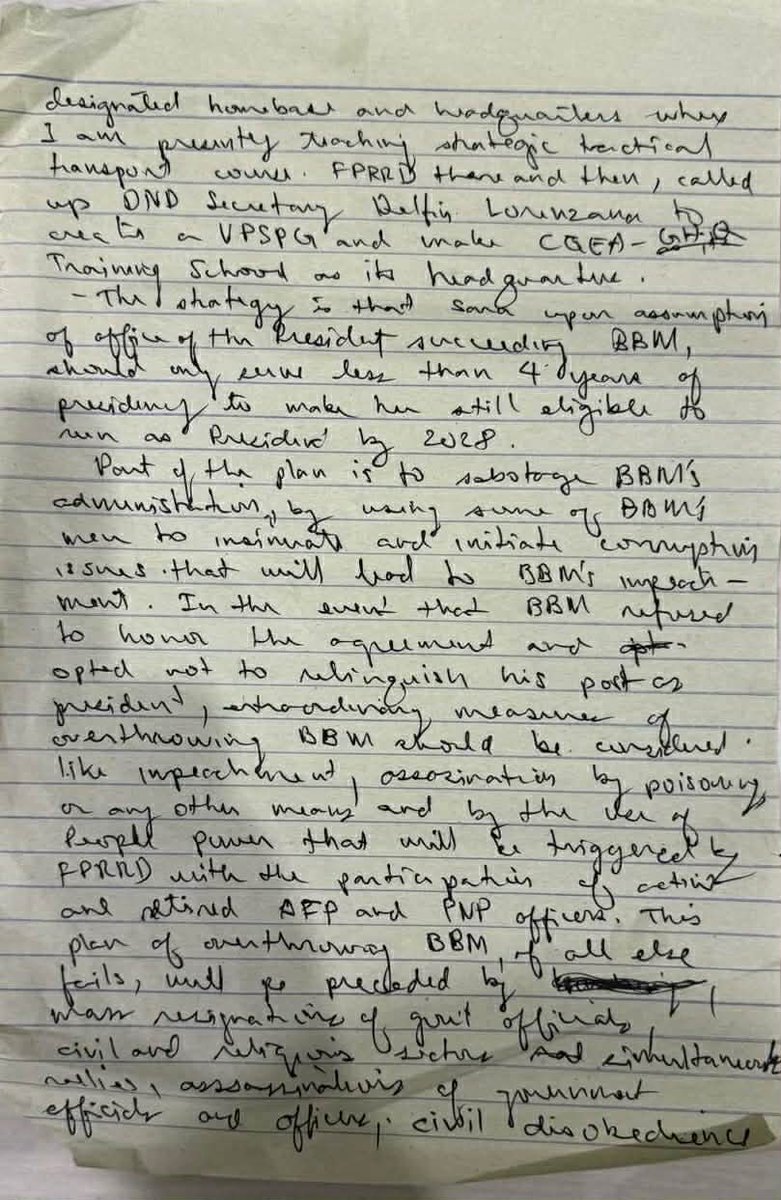 designated homebase and headquarters where
I am presently teaching strategic tactical
transport course. FPRRD there and then, called
up DND Secretary Delfin Lorenzana to
create a VPSPG and make CGEA-
Training School as its headquarters.
- The strategy is that Sara upon assumption
of office of the President succeeding BBM,
should only serve less than 4 years of
presidency to make her still eligible to
run as President by 2028.
Part of the plan is to sabotage BBM's
administration, by using some of BBM's
men to insinuate and initiate corruption
issues that will lead to BBM's impeach-
ment. In the event that BBM refused
to honor the agreement and
opted not to relinquish his post as
president, extraordinary measures of
overthrowing BBM should be considered.
like impeachment, assasination by poisoning,
or any other means and by the use of
People power that will be triggered by
FPRRD with the participation of active
and retired AFP and PNP officers. This
plan of overthrowing BBM, if all else
fails, will be preceded by
mass resignations of gov't officials,
civil and religious sectors and simultaneous
rallies, assassinations of government
officials and officers, civil disobedience